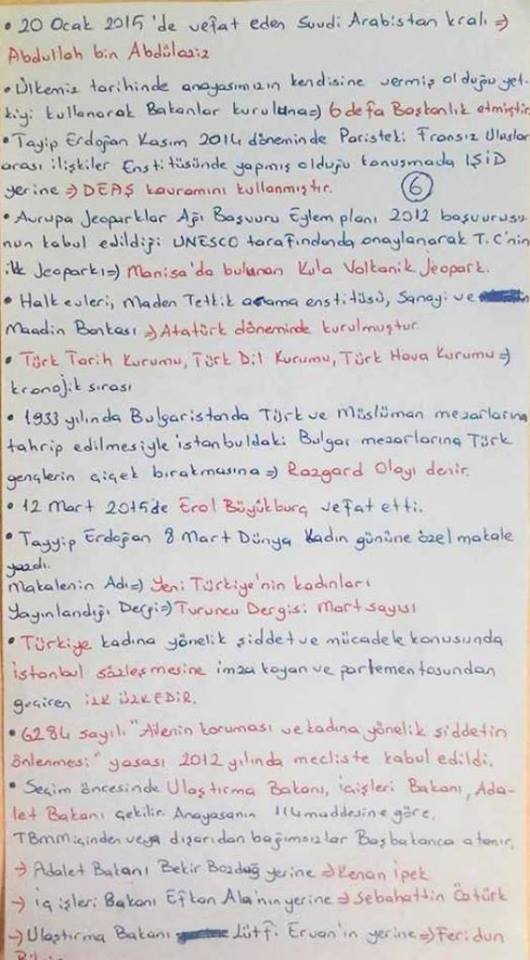 • 20 Ocak 2015'de vefat eden Suudi Arabistan kralı ⇒
Abdullah bin Abdülaziz
• Ülkemiz tarihinde anayasımızın kendisine vermiş olduğu yet-
kiyi kullanarak Bakanlar kuruluna ⇒ 6 defa Başkanlık etmiştir.
• Tayip Erdoğan Kasım 2014 döneminde Paristeki Fransız Uluslar
arası ilişkiler Enstitüsünde yapmış olduğu konuşmada IŞİD
yerine ⇒ DEAŞ kavramını kullanmıştır. 6
• Avrupa Jeoparklar Ağı Başvuru Eylem planı 2012 başvurusu
nun kabul edildiği UNESCO tarafındanda onaylanarak T.C'nin
ilk Jeoparkı ⇒ Manisa'da bulunan Kula Volkanik Jeopark.
• Halk evleri, Maden Tetkik arama enstitüsü, Sanayi ve
Maadin Bankası ⇒ Atatürk döneminde kurulmuştur.
• Türk Tarih Kurumu, Türk Dil Kurumu, Türk Hava Kurumu ⇒
kronojik sırası
• 1933 yılında Bulgaristanda Türk ve Müslüman mezarlarına
tahrip edilmesiyle istanbuldaki Bulgar mezarlarına Türk
gençlerin çiçek bırakmasına ⇒ Razgard Olayı denir.
• 12 Mart 2015'de Erol Büyükburç vefat etti.
• Tayyip Erdoğan 8 Mart Dünya Kadın gününe özel makale
yazdı.
Makalenin Adı ⇒ Yeni Türkiye'nin kadınları
Yayınlandığı Dergi ⇒ Turuncu Dergisi Mart sayısı
• Türkiye kadına yönelik şiddet ve mücadele konusunda
istanbul sözleşmesine imza koyan ve parlementosundan
geçiren İLK ÜLKEDİR.
• 6284 sayılı "Ailenin koruması ve kadına yönelik şiddetin
önlenmesi" yasası 2012 yılında mecliste kabul edildi.
• Seçim öncesinde Ulaştırma Bakanı, içişleri Bakanı, Ada-
let Bakanı çekilir. Anayasanın 114 maddesine göre.
TBMM içinden veya dışarıdan bağımsızlar Başbakanca atanır.
→ Adalet Bakanı Bekir Bozdağ yerine ⇒ Kenan İpek
→ iç işleri Bakanı Efkan Ala'nın yerine ⇒ Sebahattin Öztürk
→ Ulaştırma Bakanı Lütfi Elvan'ın yerine ⇒ Feridun